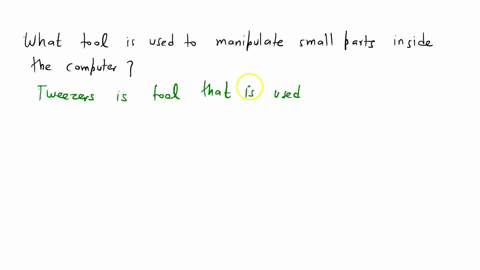 What tool is used to manipulate small parts inside
the computer?
Tweezers is tool that is used